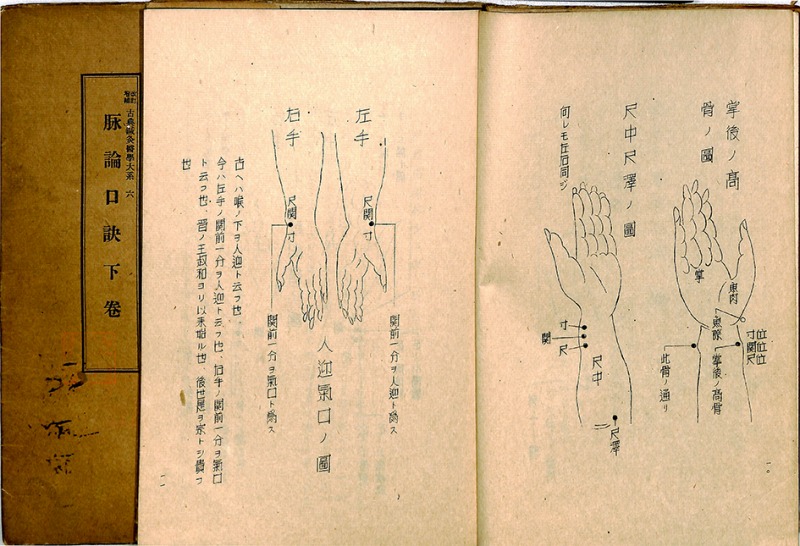 改訂
増補
古典鍼灸醫學大系 六
脉論口訣下巻
掌後ノ高
骨ノ圖
掌
魚肉
魚際
掌後ノ高骨
寸位
関位
尺位
此骨ノ通リ
尺中尺澤ノ圖
何レモ左右同ジ
寸
関
尺
尺中
尺澤
左手
尺
関
寸
関前一分ヲ人迎ト爲ス
人迎氣口ノ圖
右手
尺
関
寸
関前一分ヲ氣口ト爲ス
古ヘハ喉ノ下ヲ人迎ト云フ也
今ハ左手ノ関前一分ヲ人迎ト云フ也、右手ノ関前一分ヲ氣口
ト云フ也、晋ノ王叔和ヨリ以来始ル也、後世是ヲ宗トシ貴フ
也